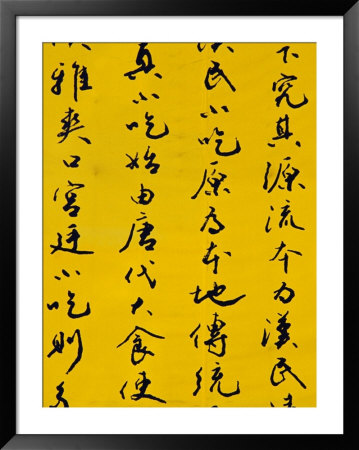 下究其源流本为漢民
漢民小吃原为本地傳統
真小吃始由唐代大食使
雅爽口宫廷小吃则